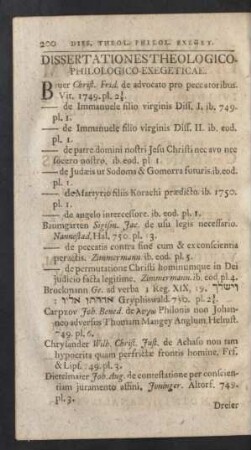 200 DISS. THEOL. PHILOL. EXEGET.
DISSERTATIONES THEOLOGICO-
PHILOLOGICO-EXEGETICAE.
Bauer Christ. Frid. de advocato pro peccatoribus.
Vit. 1749. pl. 2½.
— de Immanuele filio virginis Diss. I. ib. 749.
pl. 1.
— de Immanuele filio virginis Diss. II. ib. eod.
pl. 1.
— de patre domini nostri Jesu Christi nec avo nec
socero nostro, ib. eod. pl 1.
— de Judæis ut Sodoma & Gomorra futuris. ib. eod.
pl. 1.
— de Martyrio filiis Korachi prædicto. ib. 1750.
pl. 1.
— de angelo intercessore. ib. eod. pl. 1.
Baumgarten Sigism. Jac. de usu legis necessario.
Hal. 750. pl. 3.
— de peccatis contra sine cum & ex conscientia
peractis. Zimmermann. ib. eod. pl. 5.
— de permutatione Christi hominumque in Dei
judicio facta legitime. Zimmermann. ib. eod. pl 4.
Brockmann Ge. ad verba 1 Reg. XIX, 19. וישלך
אדרתו אליו: Gryphiswald. 750. pl. 2½.
Carpzov Job. Bened. de λογω Philonis non Johan-
neo adversus Thomam Mangey Anglum Helmst.
749. pl. 6.
Chrysander Wilh. Christ. Just. de Achaso non tam
hypocrita quam perfrictæ frontis homine, Frf.
& Lipf. 749. pl. 3.
Dietelmaier Joh. Aug. de contestatione per conscien-
tiam juramento affini, Altorf. 749.
pl. 3.
Dreier